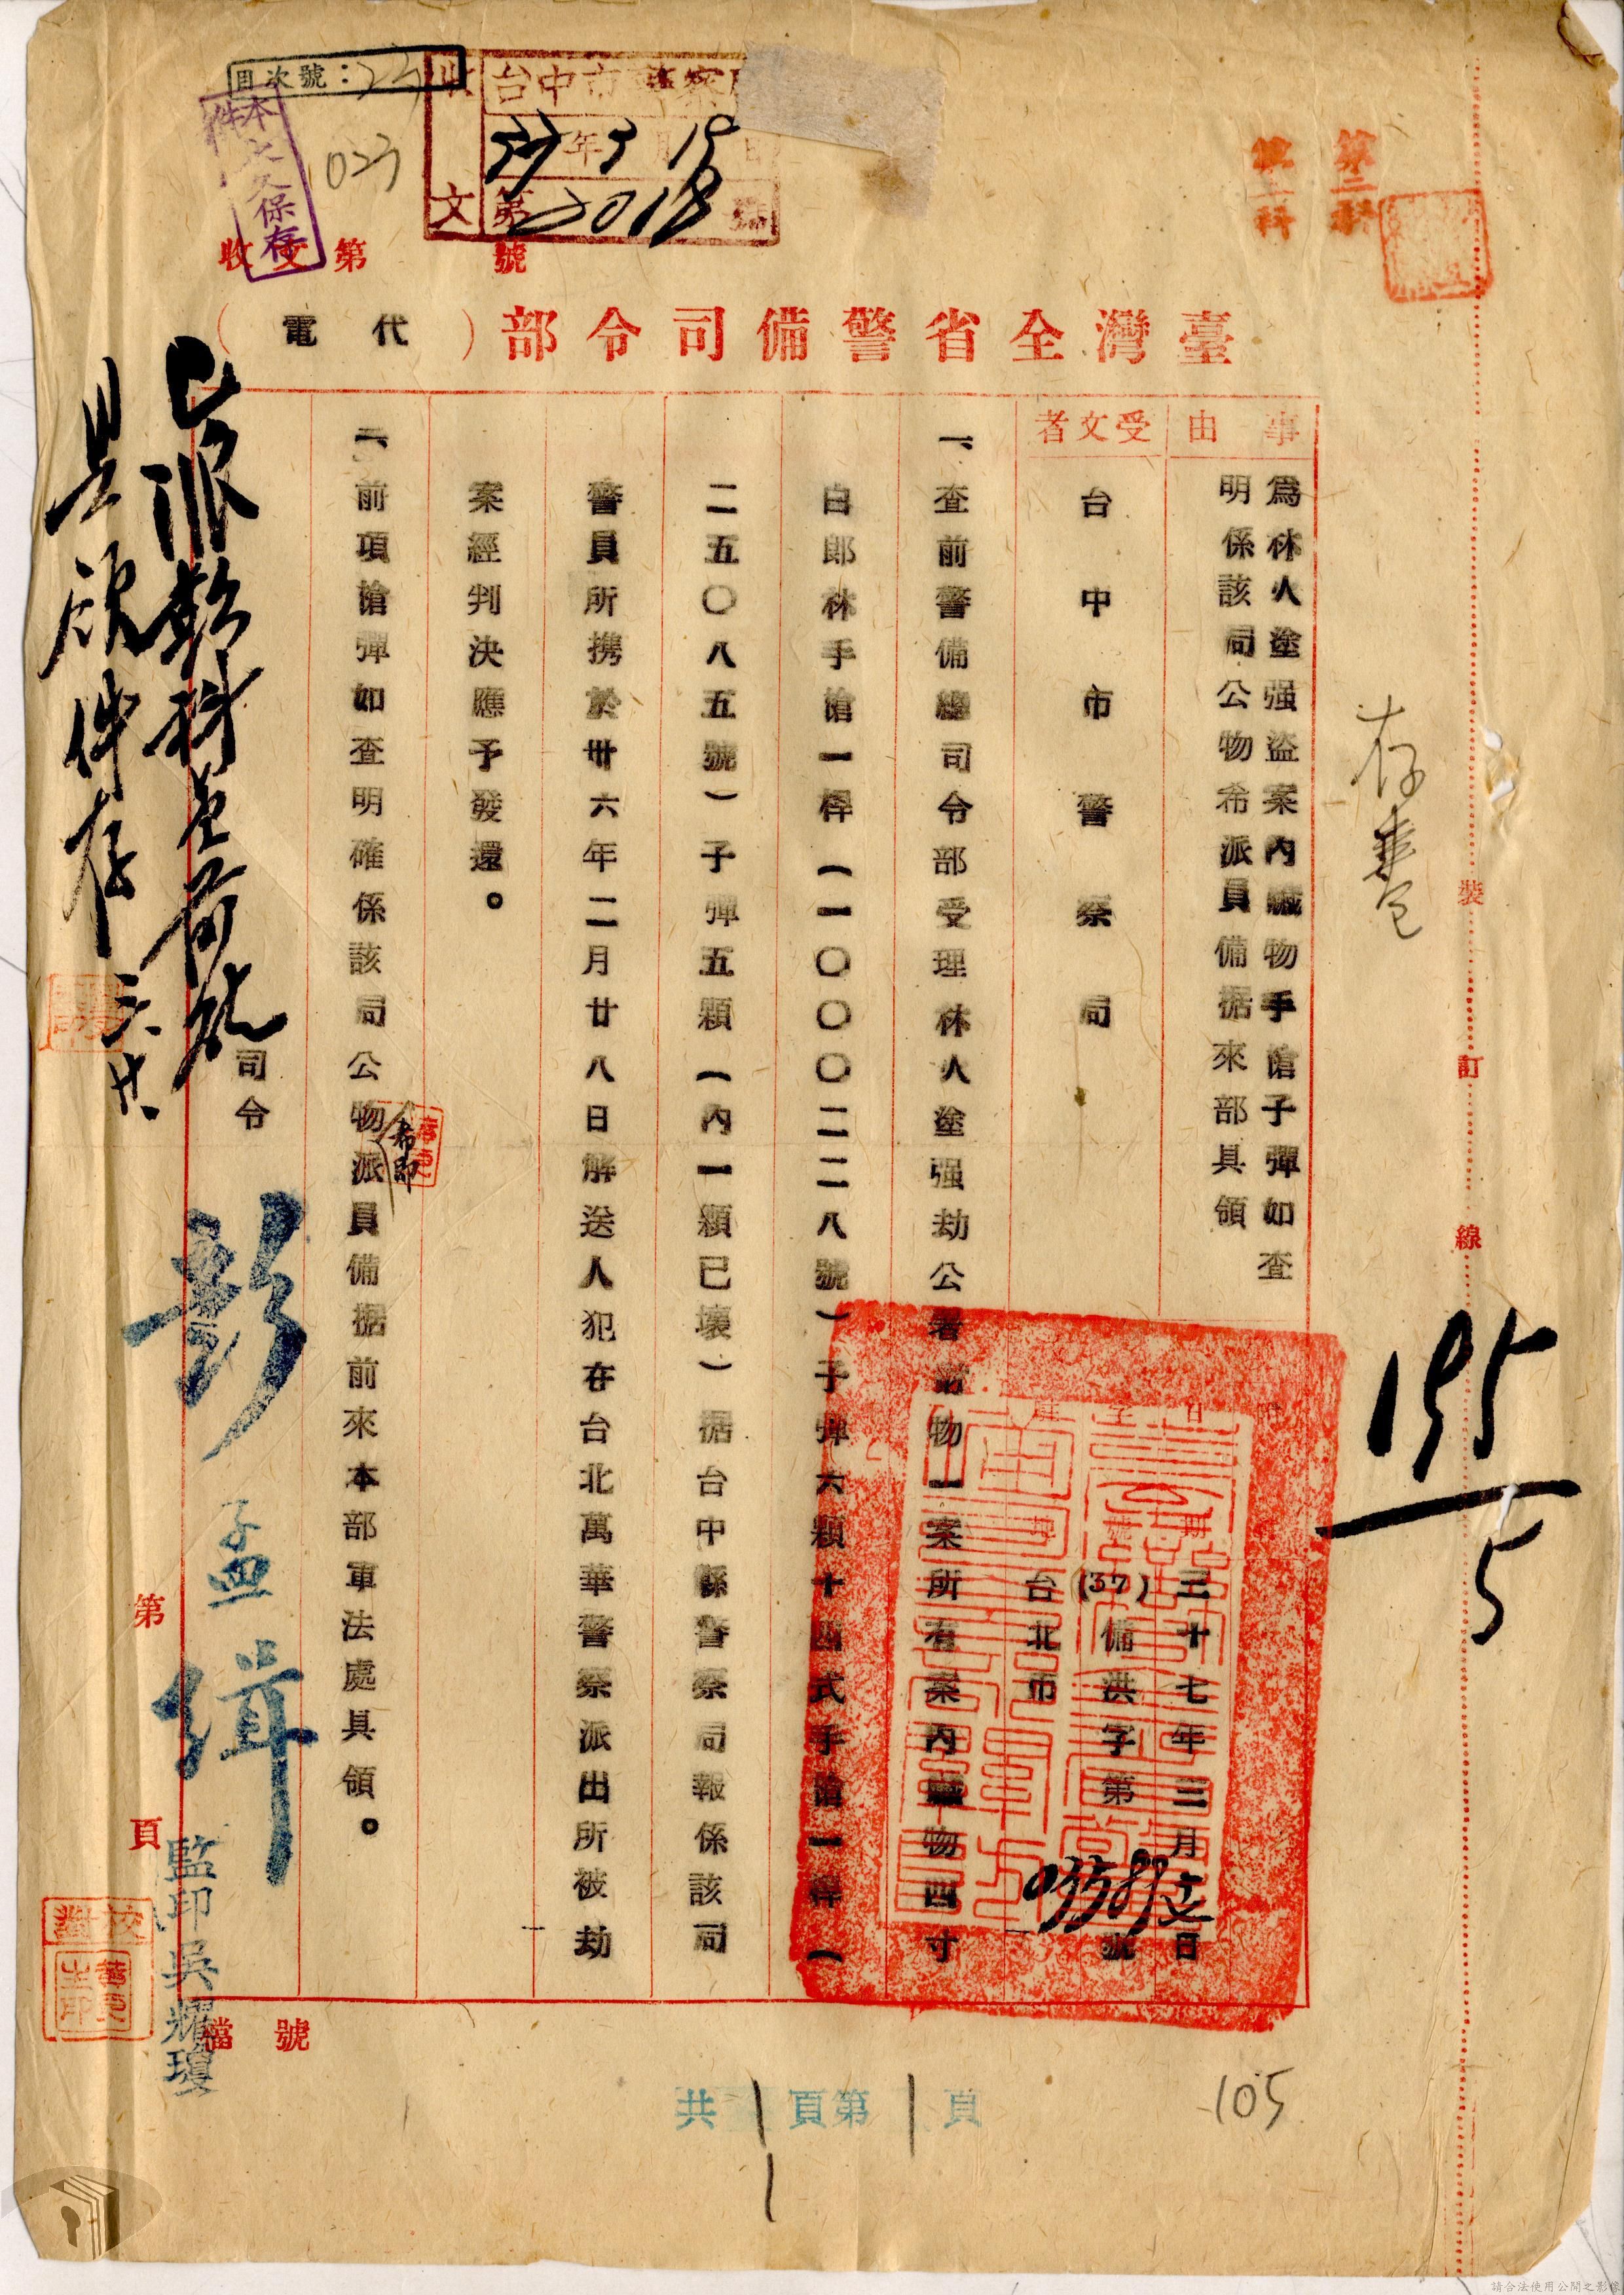 目次號：23
023
本文保存
件
收文
台中市警察
37年3月19日
第2018號
收文第　號
第二科
臺灣全省警備司令部（代電）
事由
為林火塗强盜案內贓物手槍子彈如查
明係該局公物希派員備据來部具領
受文者
台中市警察局
三十七年三月十六日
(37)備洪字第　號
台北市
一、查前警備總司令部受理林火塗强劫公署財物一案所有案內贓物四寸
白郎林手槍一桿（一〇〇〇二二八號）子彈六顆十四式手槍一桿（
二五〇八五號）子彈五顆（內一顆已壞）据台中縣警察局報係該局
警員所携於卅六年二月廿八日解送人犯在台北萬華警察派出所被劫
案經判決應予發還。
二、前項槍彈如查明確係該局公物希即派員備据前來本部軍法處具領。
司令 彭孟緝
監印吳耀瓊
校對
具領件存
存卷
195
5
裝訂線
第　頁
檔號
共1頁第1頁
1
105
請合法使用公開之影